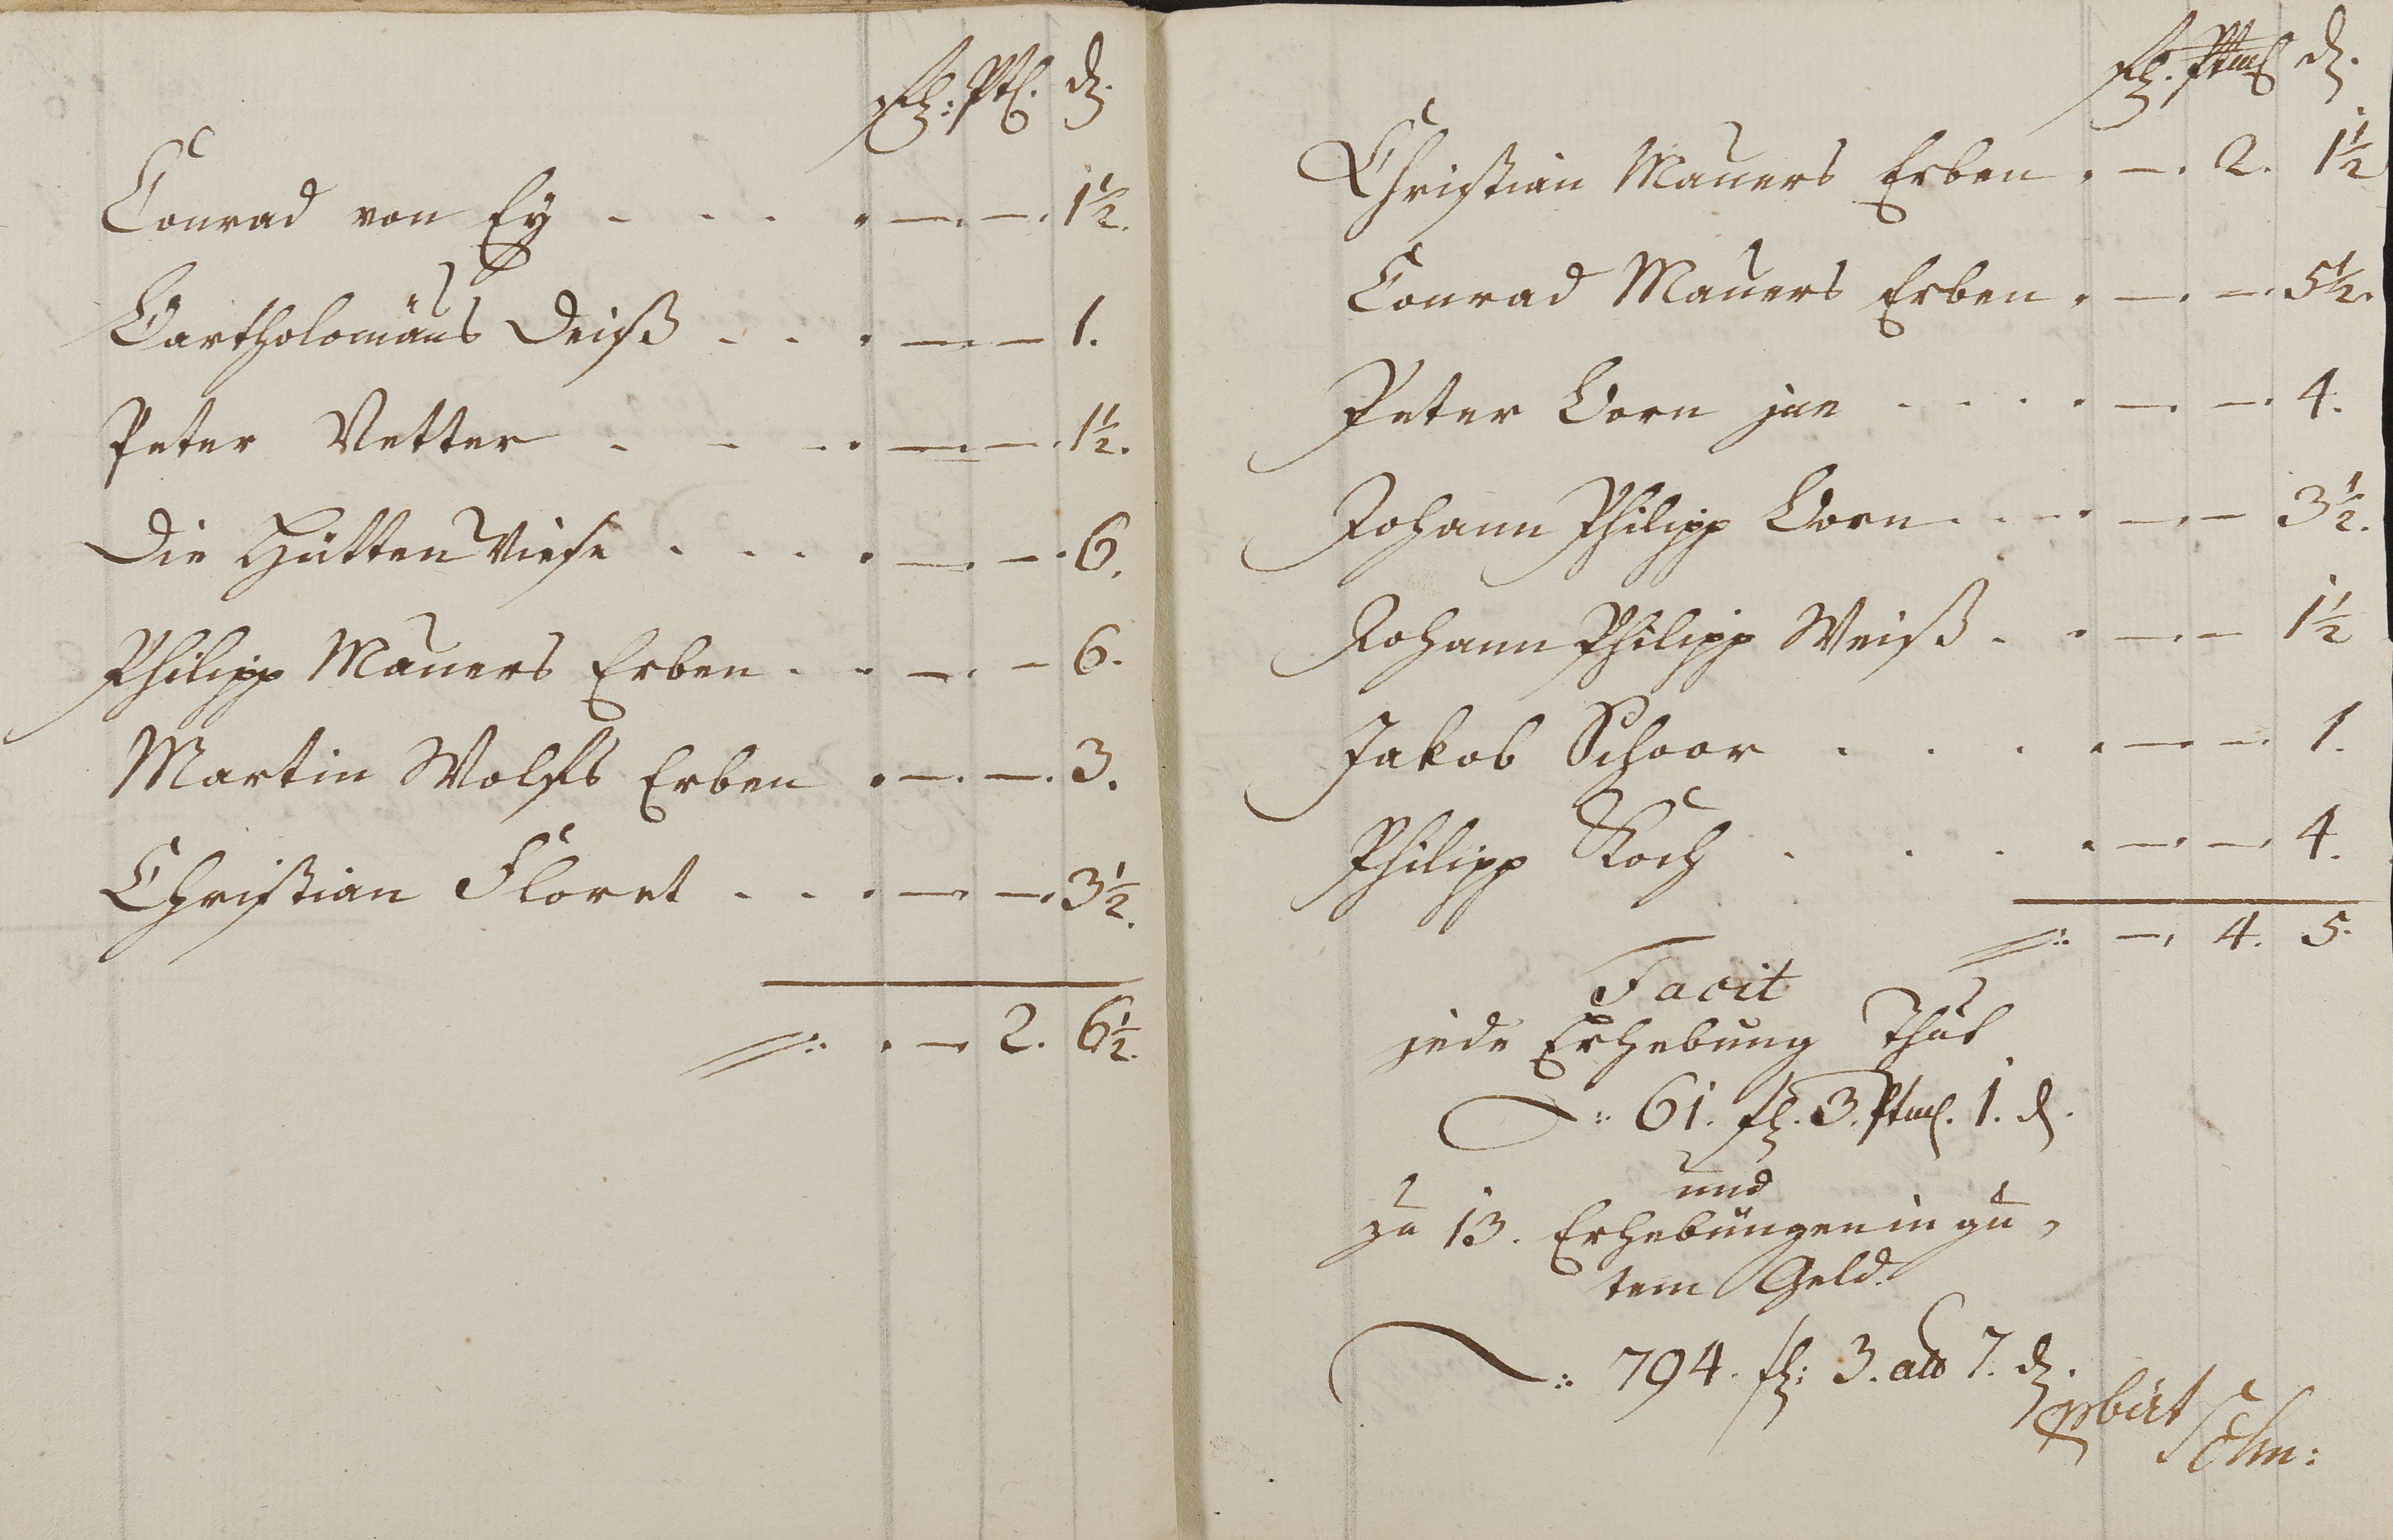 fl: Ptl. d.
Conrad von Ey - - . . — . — . 1½.
Bartholomäus Deiß - - . — . — 1.
Peter Vetter - - - . — . — . 1½.
Die Hütten Wiese . . . . — . — . 6.
Philipp Mauers Erben . . — . — 6.
Martin Wolffs Erben . — . — . 3.
Christian Floret - - . — . — . 3½.
. — . 2. 6½.
fl. Ptml d.
Christian Mauers Erben . — . 2. 1½
Conrad Mauers Erben . — . — . 5½.
Peter Born jun - - - . — . — . 4.
Johann Philipp Born . . . — . — 3½.
Johann Philipp Weiß - . — . — 1½
Jakob Schoor . . . . — . — . 1.
Philipp Koch . . . . — . — . 4.
— . 4. 5.
Facit
jede Erhebung Thut
61. fl. 3. Ptml. 1. d.
und
zu 13. Erhebungen in gu-
tem Geld.
794. fl: 3. alb 7. d.